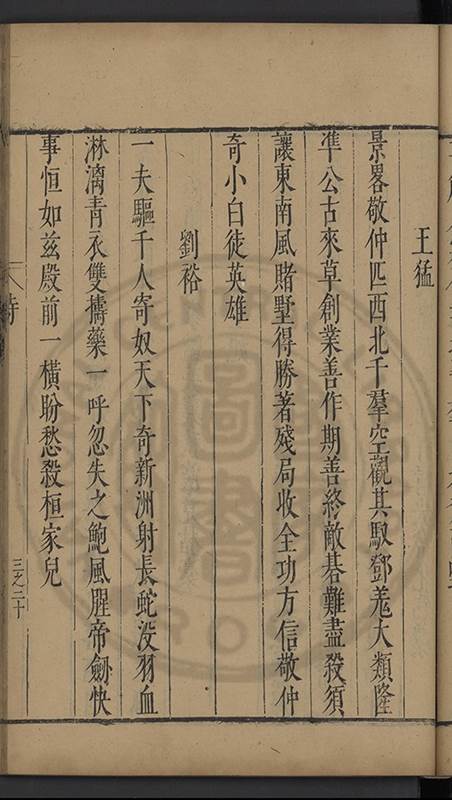 王猛
景畧敬仲匹西北千羣空觀其馭鄧羗大類隆
準公古來草創業善作期善終敵碁難盡殺須
讓東南風賭墅得勝著殘局收全功方信敬仲
奇小白徒英雄
劉裕
一夫驅千人寄奴天下奇新洲射長蛇没羽血
淋漓青衣雙擣藥一呼忽失之鮑風腥帝劒快
事恒如兹殿前一橫盼愁殺桓家兒
詩
三之二十